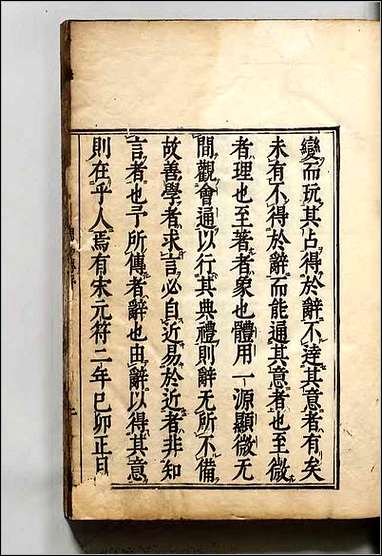 變而玩其占得於辭不逹其意者有矣
未有不得於辭而能通其意者也至微
者理也至著者象也體用一源顯微无
間觀會通以行其典禮則辭无所不備
故善學者求言必自近易於近者非知
言者也予所傳者辭也由辭以得其意
則在乎人焉有宋元符二年己卯正月